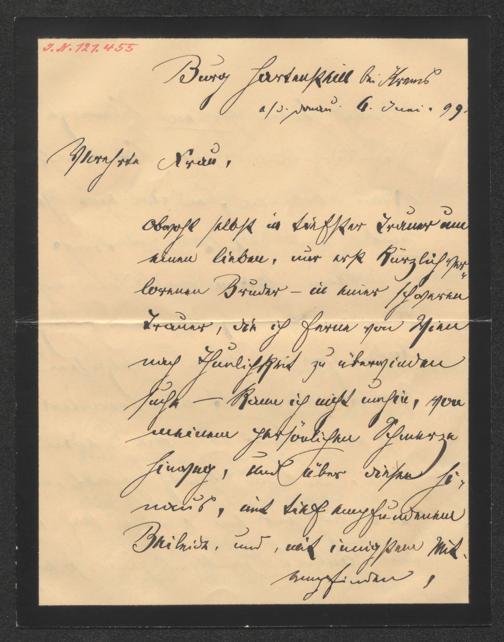 J.N. 121.455
Burg Hartenstein bei Krems
a/d. Donau. 6. Juni. 99.
Verehrte Frau,
obwohl selbst in tiefster Trauer um
einen lieben, nur erst kürzlich ver-
lorenen Bruder – in einer schweren
Trauer, die ich ferne von Wien
nach Thunlichkeit zu überwinden
suche – kann ich nicht umhin, von
meinem persönlichen Schmerze
hinweg, und über diesen hi-
naus, mit tief empfundenem
Beileide, und, mit innigstem Mit-
empfinden,